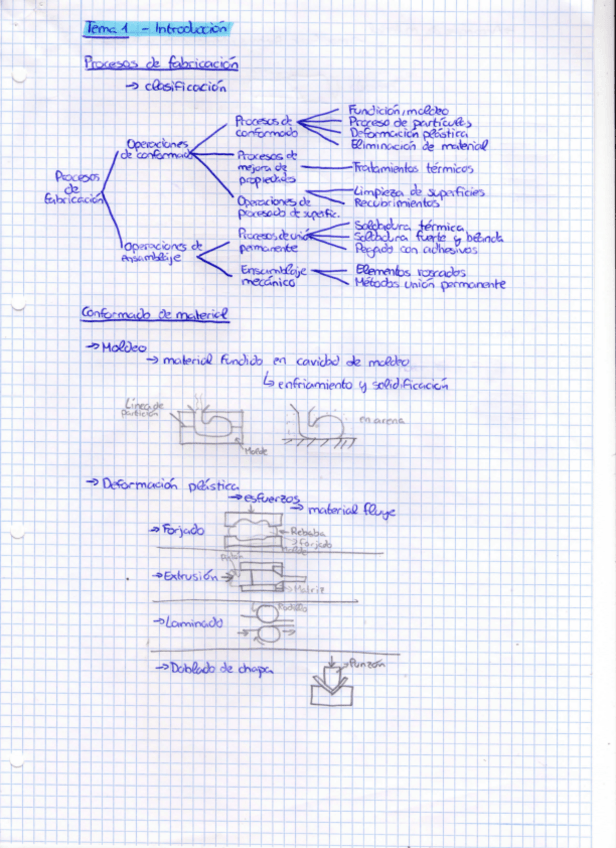 Tema 1 - Introducción
Procesos de fabricación
→ clasificación
Procesos de fabricación
Operaciones de conformado
Procesos de conformado
Fundición, moldeo
Proceso de partículas
Deformación plástica
Eliminación de material
Procesos de mejora de propiedades
Tratamientos térmicos
Operaciones de procesado de superfic.
Limpieza de superficies
Recubrimientos
Operaciones de ensamblaje
Procesos de unión permanente
Soldadura térmica
Soldadura fuerte y blanda
Pegado con adhesivos
Ensamblaje mecánico
Elementos roscados
Métodos unión permanente
Conformado de material
→ Moldeo
→ material fundido en cavidad de moldeo
↳ enfriamiento y solidificación
Línea de partición
Molde
en arena
→ Deformación plástica
→ esfuerzos
→ material fluye
→ Forjado
Rebaba
→ Forjado
→ Extrusión
Matriz
→ Laminado
Rodillo
→ Doblado de chapa
Punzón